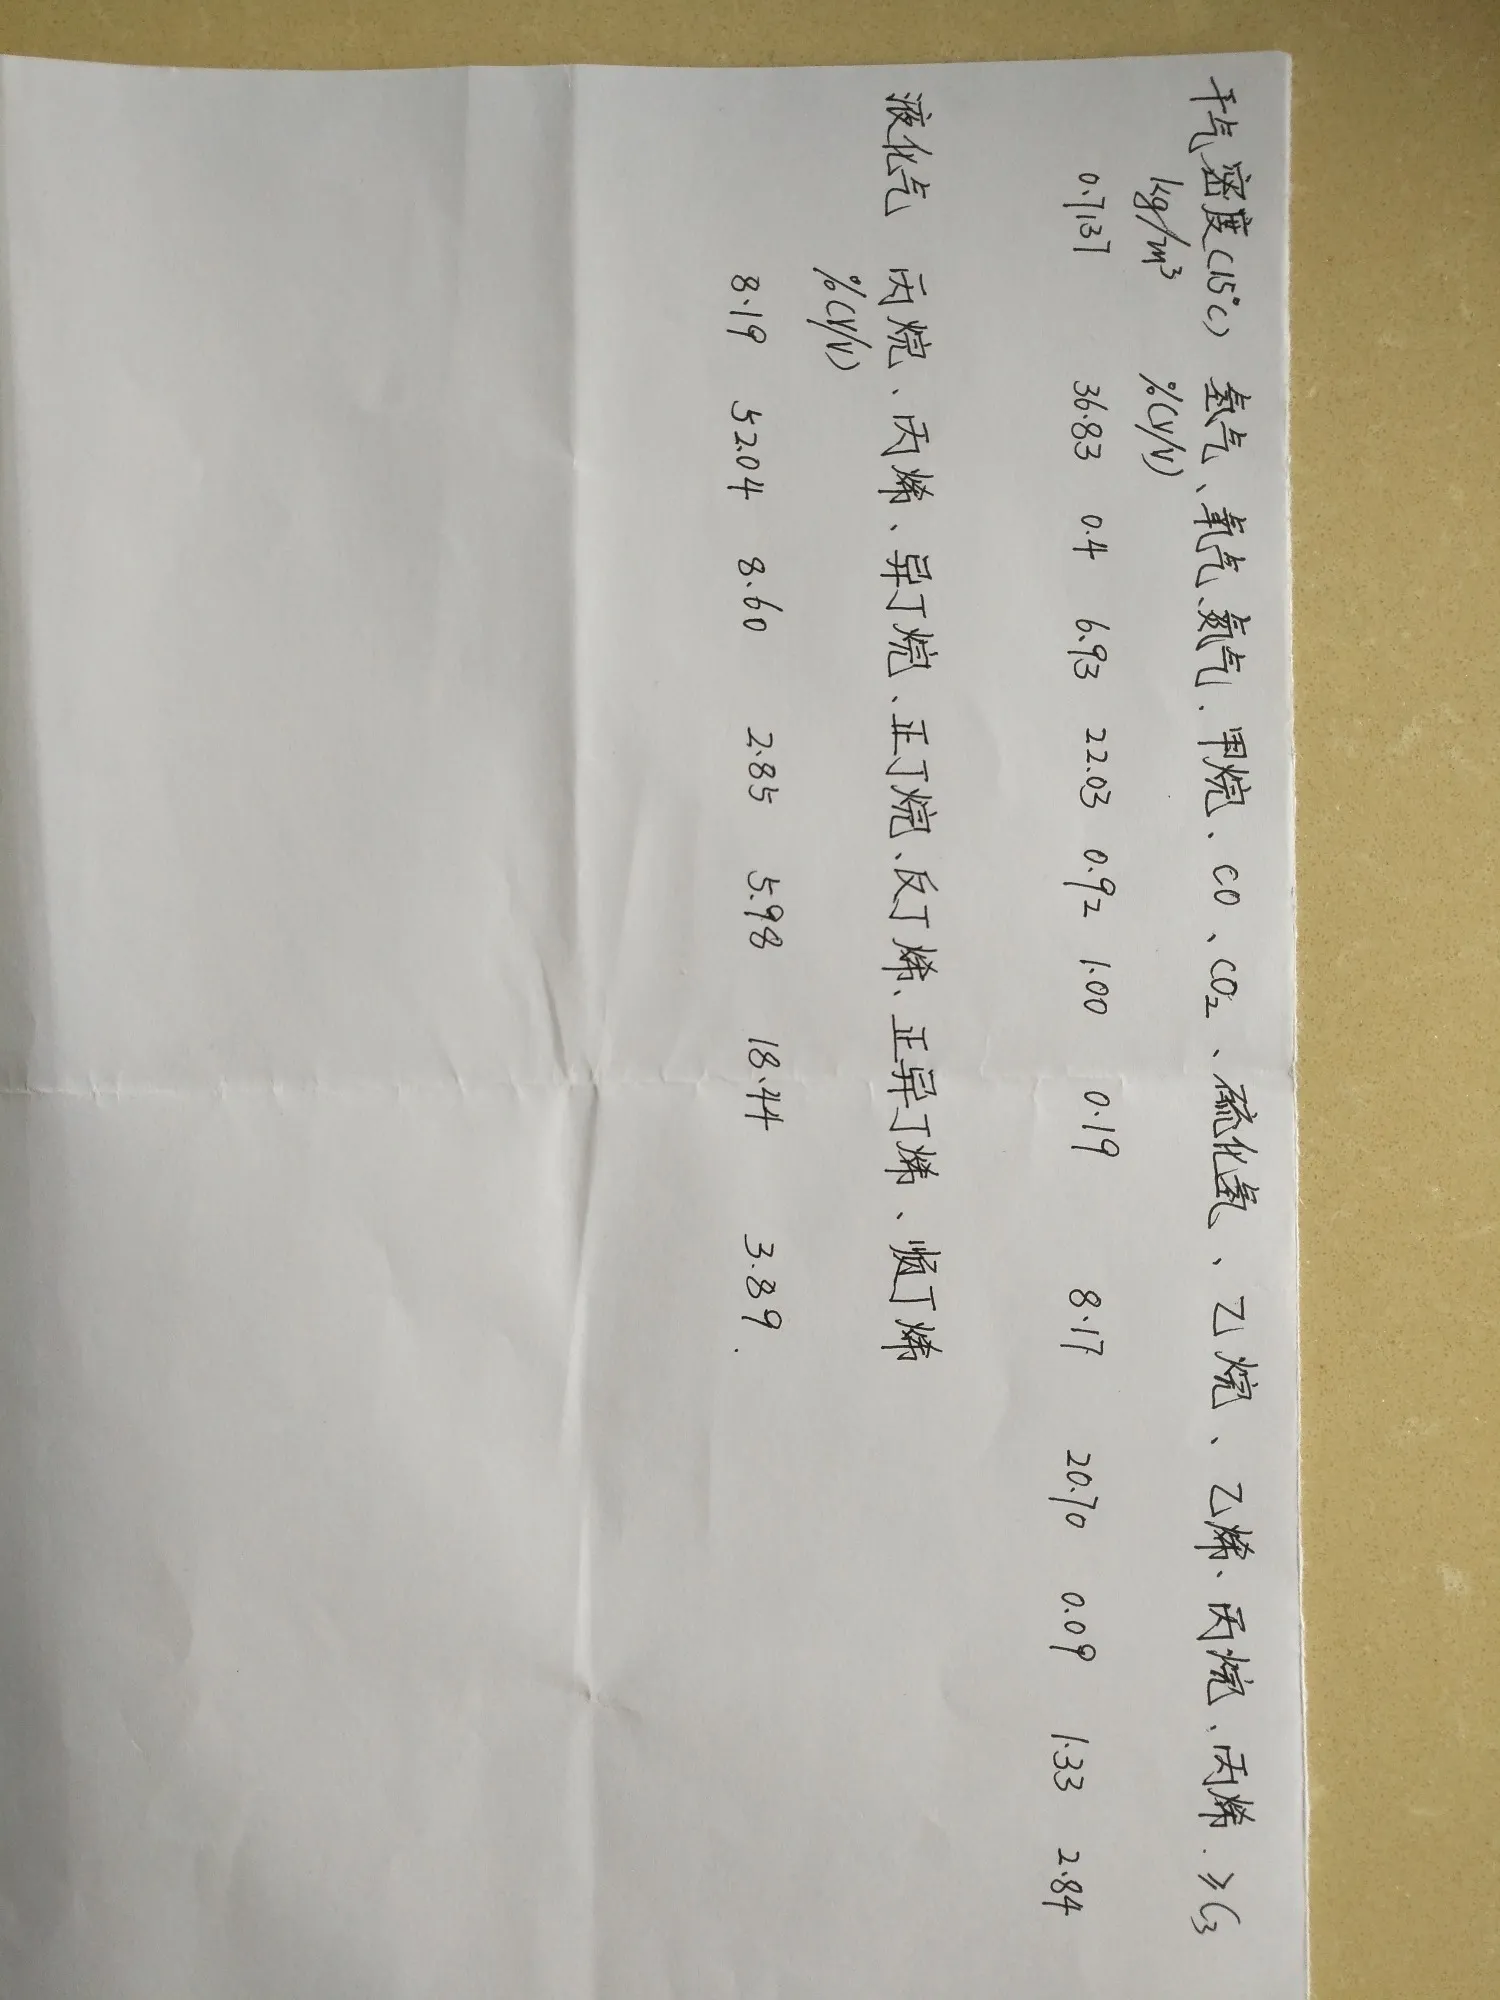 干气密度(15℃) 氢气、氧气、氮气、甲烷、CO、CO₂、硫化氢、乙烷、乙烯、丙烷、丙烯、≥C₃
kg/m³ %(V/V)
0.7137 36.83 0.4 6.93 22.03 0.92 1.00 0.19 8.17 20.70 0.09 1.33 2.84
液化气 丙烷、丙烯、异丁烷、正丁烷、反丁烯、正异丁烯、顺丁烯
%(V/V)
8.19 52.04 8.60 2.85 5.98 18.44 3.89.